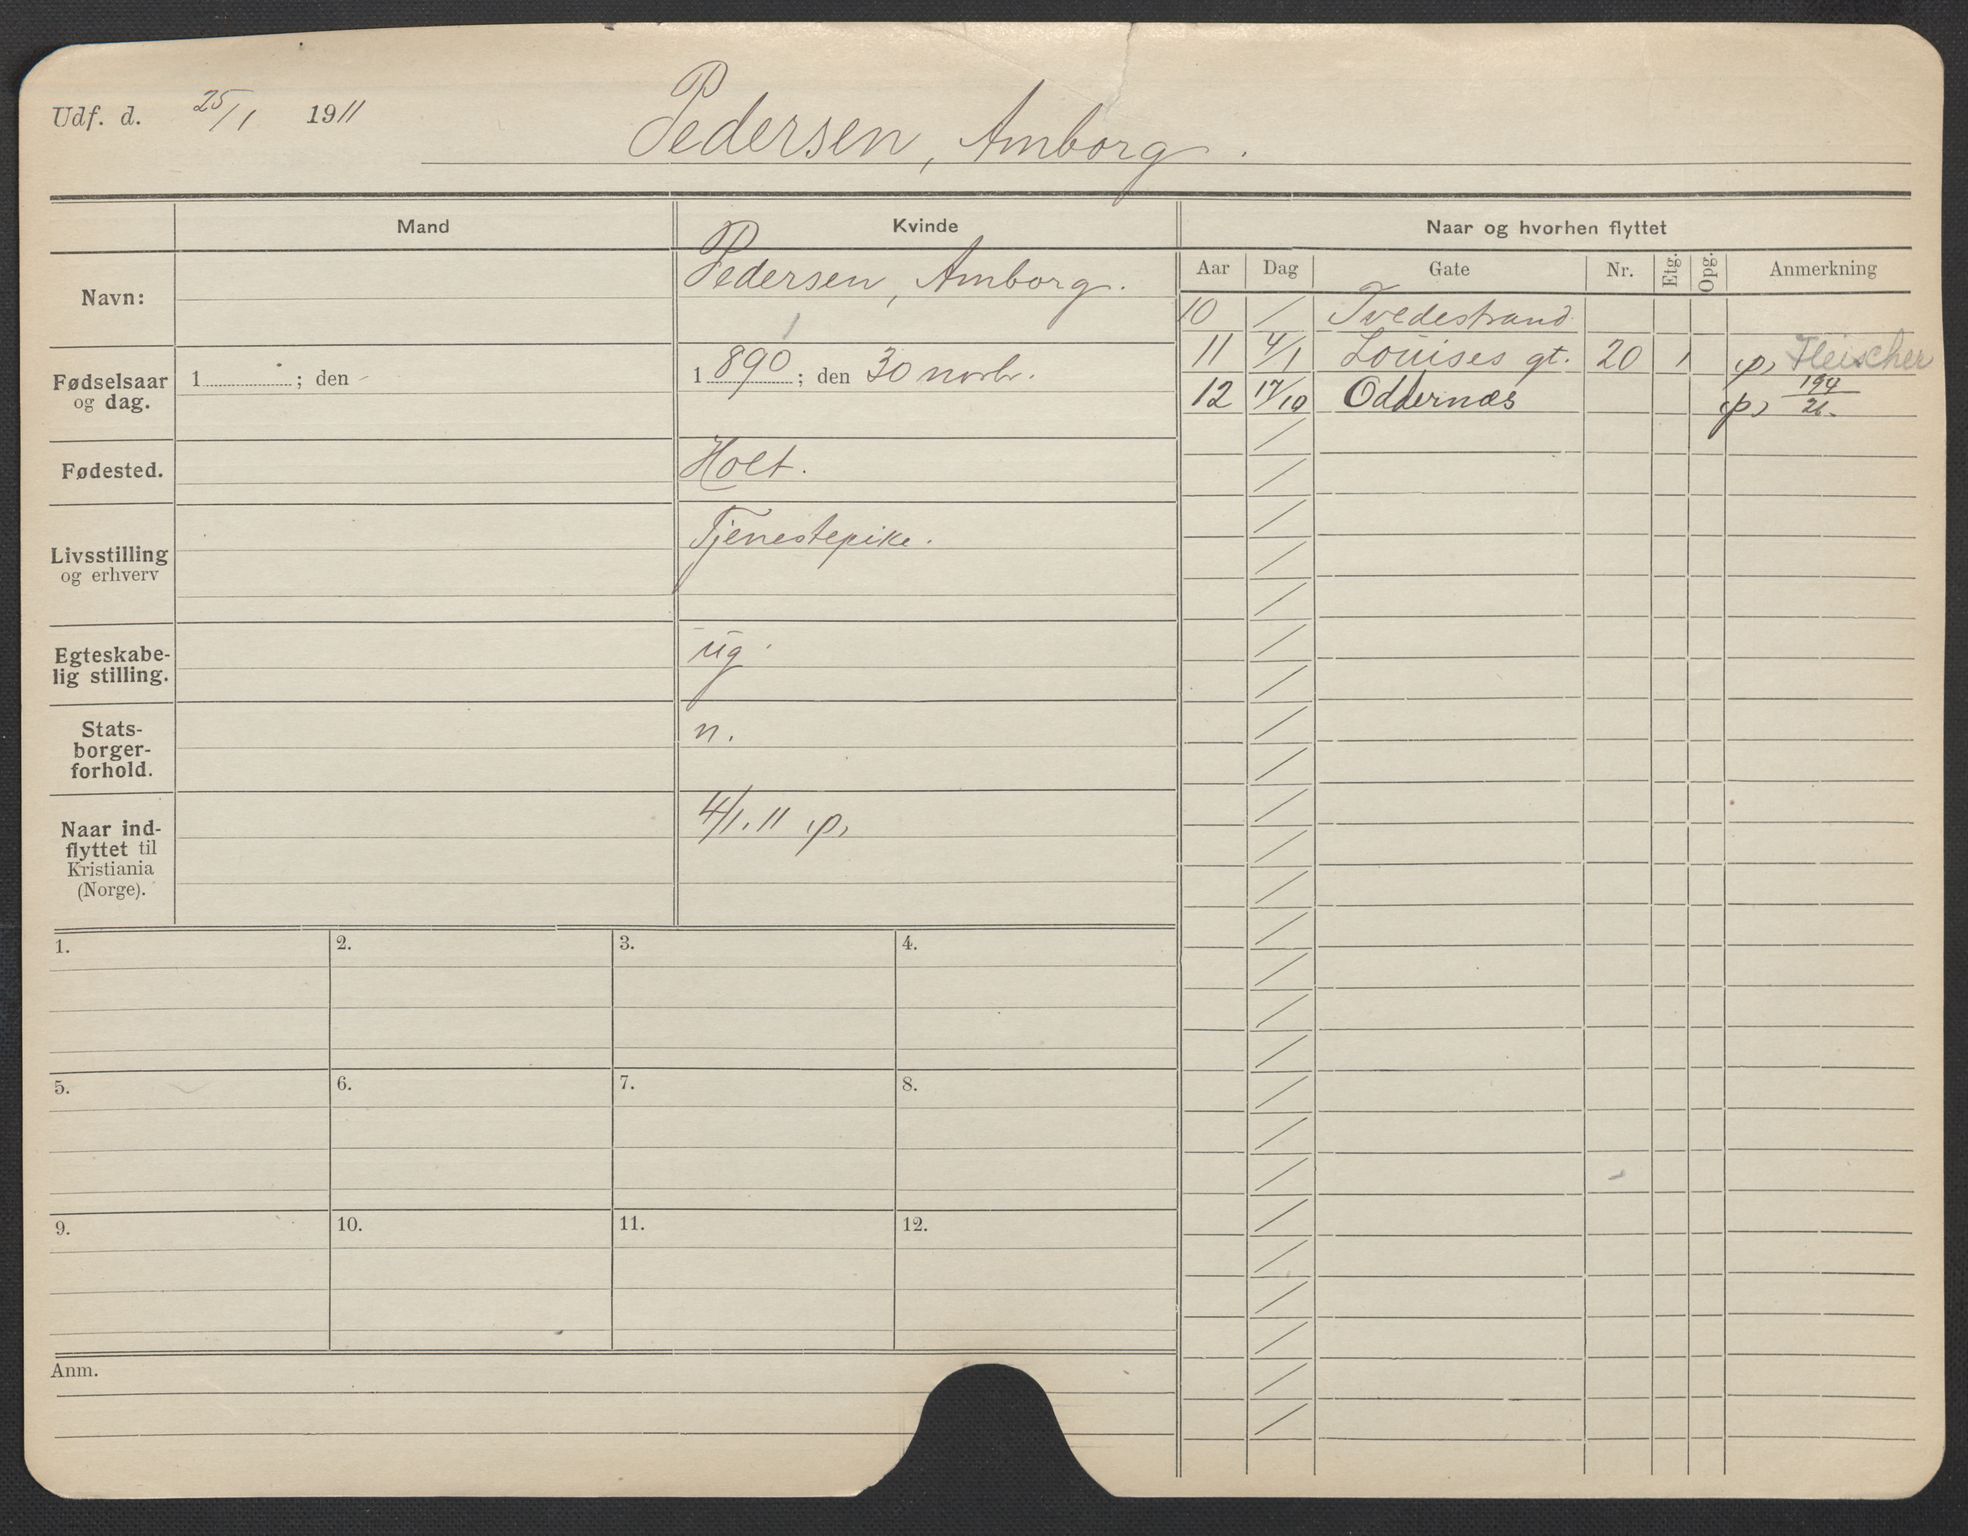 Udf. d. 25/1 1911 Pedersen, Amborg.
Mand Kvinde Naar og hvorhen flyttet
Aar Dag Gate Nr. Etg. Opg. Anmerkning
Navn: Pedersen, Amborg.
10 / Tvedestrand
11 4/1 Louises gt. 20 1 p, Fleischer
12 17/10 Oddernæs p, 194/26.
Fødselsaar og dag. 1 ; den 1 890 ; den 30 novbr.
1
Fødested. Holt.
Livsstilling og erhverv Tjenestepike.
Egteskabe-
lig stilling. ug.
Stats-
borger-
forhold. n.
Naar ind-
flyttet til
Kristiania
(Norge). 4/1. 11 p,
1. 2. 3. 4.
5. 6. 7. 8.
9. 10. 11. 12.
Anm.